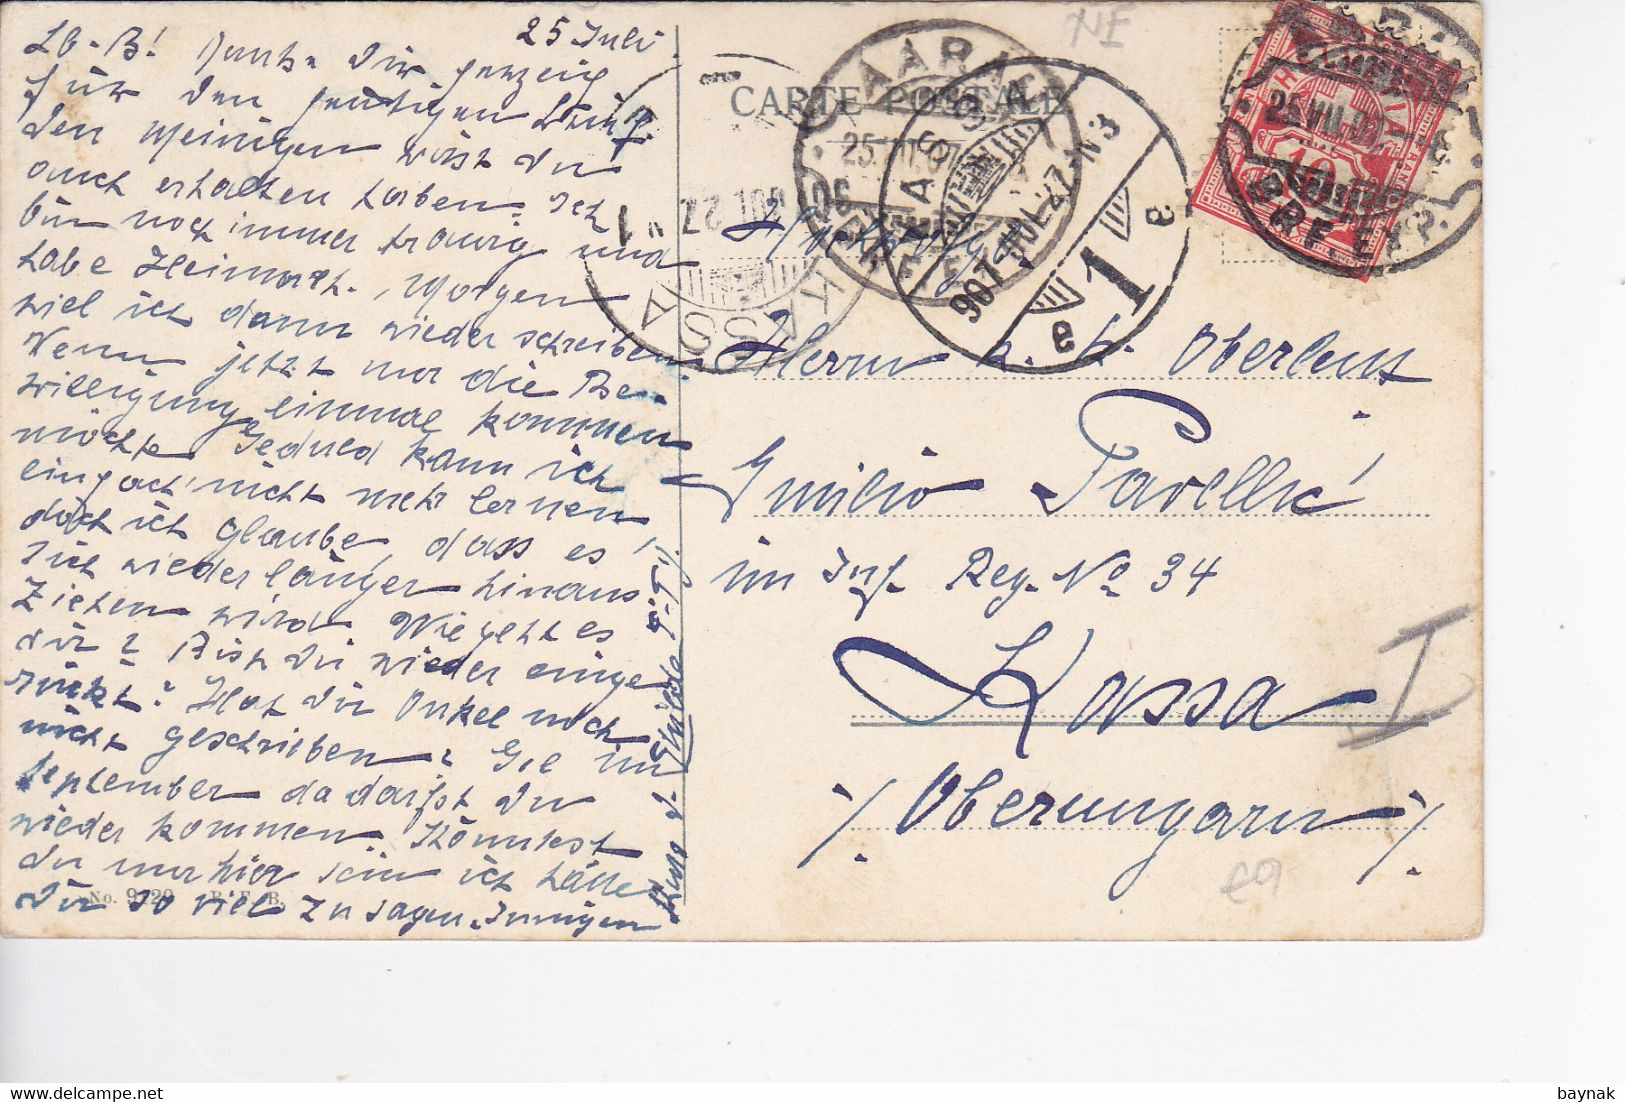 25 Juli
Lb. B! Danke Dir herzig
für den heutigen Brief.
den Meinigen wirst du
auch erhalten haben. Ich
bin noch immer traurig und
habe Heimweh. Morgen
will ich dann wieder schreiben.
Wenn jetzt nur die Be-
willigung einmal kommen
möchte Geduld kann ich
einfach nicht mehr lernen
doch ich glaube, dass es
sich wieder länger hinaus
ziehen wird. Wie geht es
dir? Bist du wieder einge
rückt? Hat dir Onkel noch
nicht geschrieben? Gel im
September da darfst du
wieder kommen. Könntest
du nur hier sein ich hätte
dir so viel zu sagen. Innigen
Kuss d.
CARTE POSTALE
AARAU
25.VII.07
BRF. EXP.
KASSA
907 JUL 27 N3
1
e e
KASSA
HELVETIA
FRANCO
10
25.VII.07
BRF. EXP.
Herrn k. k. Oberleut
Emilio Pavellić
im Inf. Reg. No 34
Kassa
I
/. Oberungarn /.
No. 9729 B. F. B.
baynak